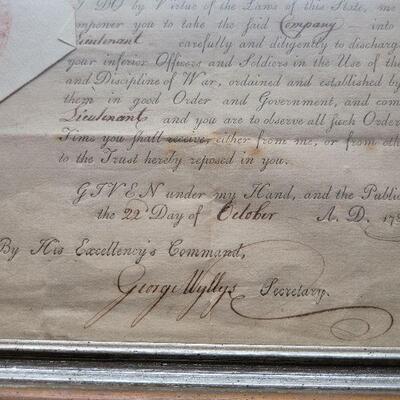 I DO by Virtue of the Laws of this State, me
impower you to take the said Company into
Lieutenant carefully and diligently to discharge
your inferior Officers and Soldiers in the Use of the
and Discipline of War, ordained and established by
them in good Order and Government, and com
Lieutenant and you are to observe all such Order
Time you shall receive either from me, or from oth
to the Trust hereby reposed in you.
GIVEN under my Hand, and the Public
the 22d Day of October A. D. 17
By His Excellency's Command,
George Wyllys Secretary.